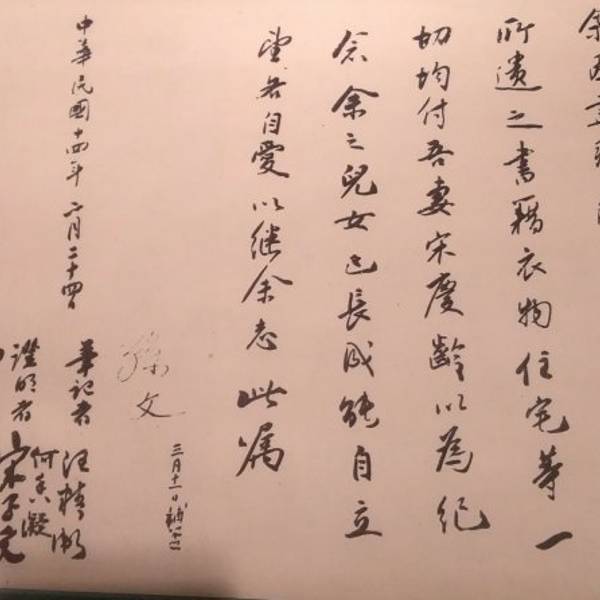 余因
所遺之書籍衣物住宅等一
切均付吾妻宋慶齡以為紀
念余之兒女已長成能自立
望各自愛以继余志此嘱
孫文
三月十一日補簽
中華民國十四年二月二十四日
筆記者 汪精衛
證明者 宋子文
何香凝